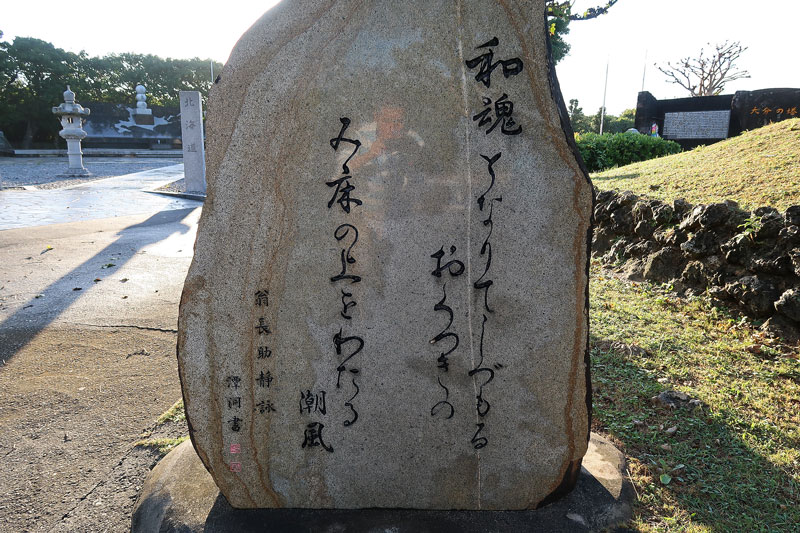 和魂となりてしづもる
おくつきの
み床の上をわたる
潮風
翁長助静詠
静洞書
北海道
大分の塔